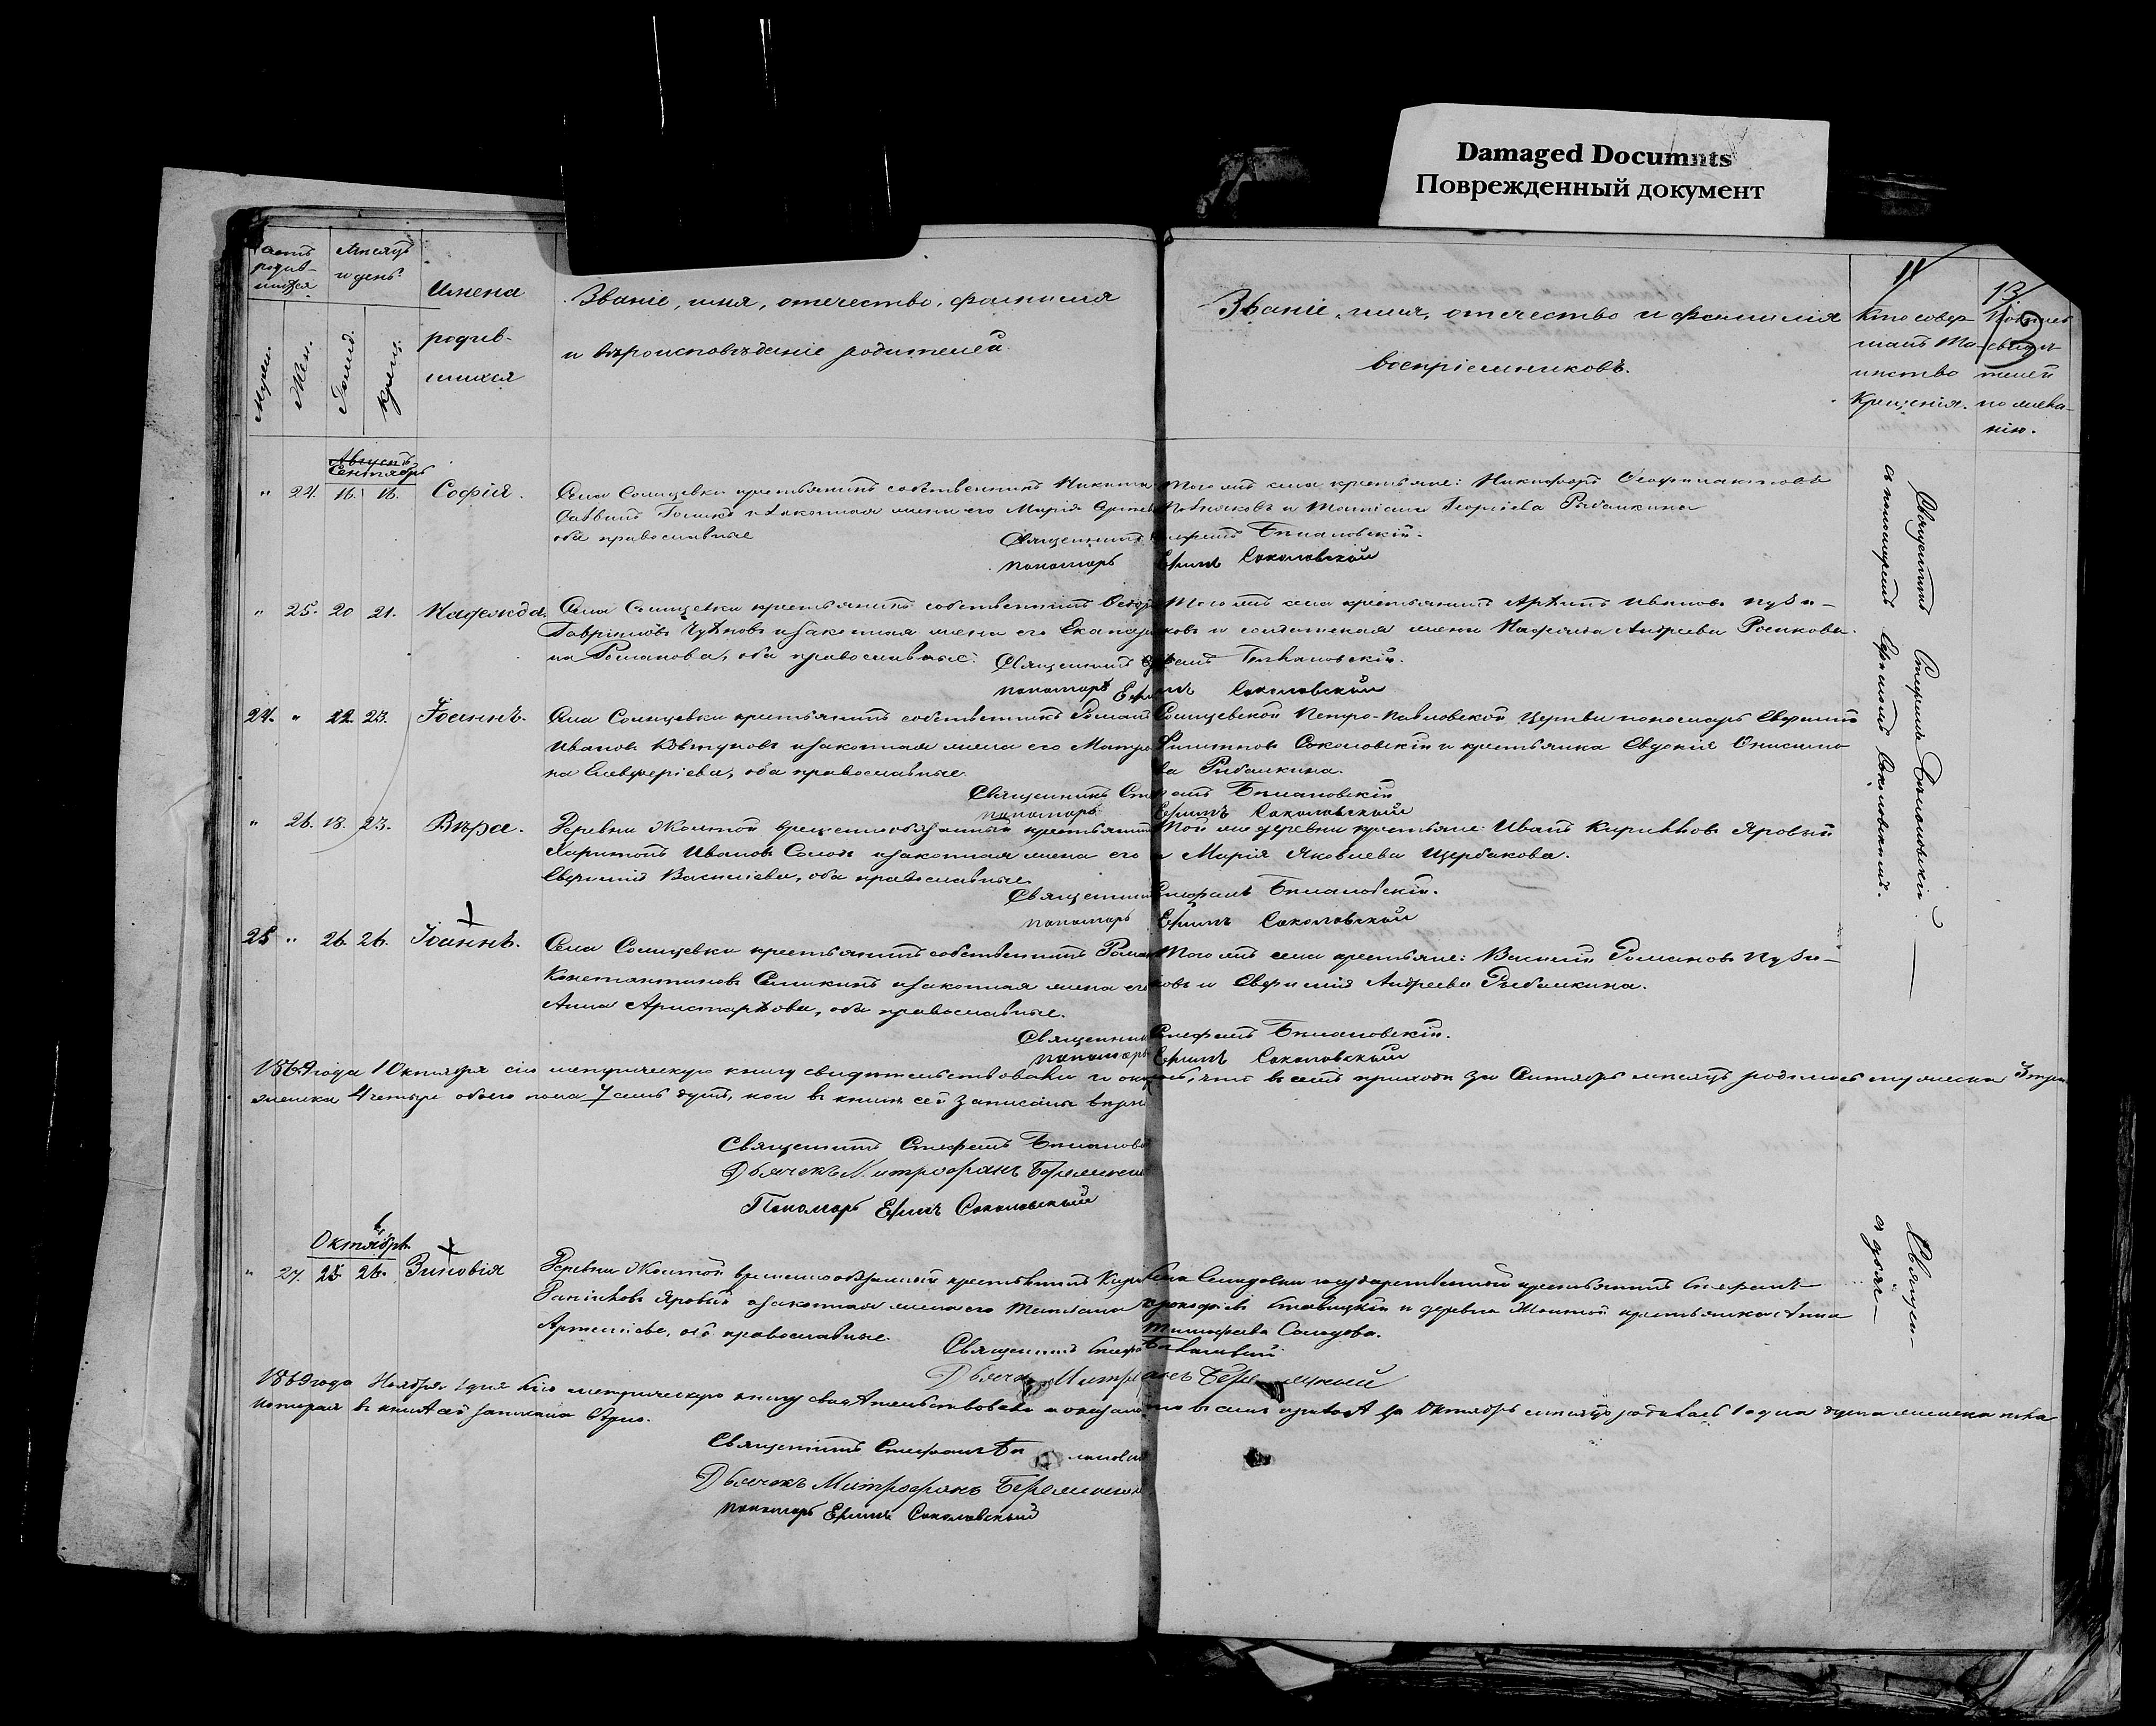 Damaged Documnts
Поврежденный документ
11
13
Счетъ родив-шихся
Мѣсяцъ и день
Имена родив-шихся
Званіе, имя, отечество, фамилія
и вѣроисповѣданіе родителей
Званіе, имя, отечество и фамилія
воспріемниковъ.
Кто совер-
шалъ Та-
инство
Крещенія.
по жела-
нію.
Мужес. Жен. Рожд. Крещ.
Августъ
Сентябрь
" 24. 16. 16. Софія.
Села Солнцевки крестьянинъ собственникъ Никита
Саввинъ и законная жена его Марія
оба православные
Того жъ села крестьяне: Никифоръ Феофилактовъ
и Георгіева Рыбалкина
Священникъ Стефанъ Бѣлановскій.
Пономарь Ефимъ Соколовский
" 25. 20 21. Надежда.
Села Солнцевки крестьянинъ собственникъ
Гавріиловъ Чухновъ и законная жена его Екатери-
на Романова, оба православные.
Того жъ села крестьянинъ Архипъ Ивановъ Пузи-
ковъ и солдатская жена Андреева
Священникъ Стефанъ Бѣлановскій.
Пономарь Ефимъ Соколовский
24. " 22. 23. Іоаннъ.
Села Солнцевки крестьянинъ собственникъ Романъ
Ивановъ Ковтуновъ и законная жена его Матро-
на Елевферіева, оба православные.
Солнцевской Петро-Павловской Церкви пономарь Евфимій
Соколовскій и крестьянка Евдокія Онисимо-
ва Рыбалкина.
Священникъ Стефанъ Бѣлановскій
Пономарь Ефимъ Соколовский
" 26. 18. 23. Вѣра.
Деревни Жолтой временнообязанный крестьянинъ
Харитонъ Ивановъ и законная жена его
Евфимія Васильева, оба православные.
Той же деревни крестьяне: Иванъ Кирилловъ Яровый
и Марія Яковлева Щербакова.
Священникъ Стефанъ Бѣлановскій.
Пономарь Ефимъ Соколовский
25 " 26. 26. Іоаннъ.
Села Солнцевки крестьянинъ собственникъ Романъ
Константиновъ и законная жена его
Анна Аристархова, оба православные.
Того жъ села крестьяне: Василій Романовъ Пузи-
ковъ и Евфимія Андреева Рыбалкина.
Священникъ Стефанъ Бѣлановскій.
Пономарь Ефимъ Соколовский
Священникъ Стефанъ Бѣлановскій
съ пономаремъ Ефимомъ Соколовскимъ.
1869 года 1 Октября сію метрическую книгу свидетельствовали и что въ семъ приходѣ за Сентябрь мѣсяцъ родилось мужеска 3 три
женска 4 четыре обоего пола 7 семь душъ, кои въ книгѣ сей записаны вѣрно
Священникъ Стефанъ Бѣлановс
Дьячекъ Митрофанъ
Пономарь Ефимъ Соколовский
Октябрь.
" 27. 25. 26. Зиновія
Деревни Жолтой временнообязанный крестьянинъ
Яровый и законная жена его Татіана
Артеміева, оба православные.
Села государственный крестьянинъ Стефанъ
Прокофіевъ и деревни Жолтой крестьянка Анна
Тимофеева
Священникъ Стефанъ Бѣлановскій
Дьячекъ Митрофанъ
Священ-
съ дьяч-
1869 года Ноября 1 дня сію метрическую книгу свидѣтельствовали и оказалось что въ семъ приходѣ за Октябрь мѣсяцъ родилась 1 одна душа женска пола
которая въ книгѣ сей записана вѣрно.
Священникъ Стефанъ
Дьячекъ Митрофанъ
Пономарь Ефимъ Соколовский